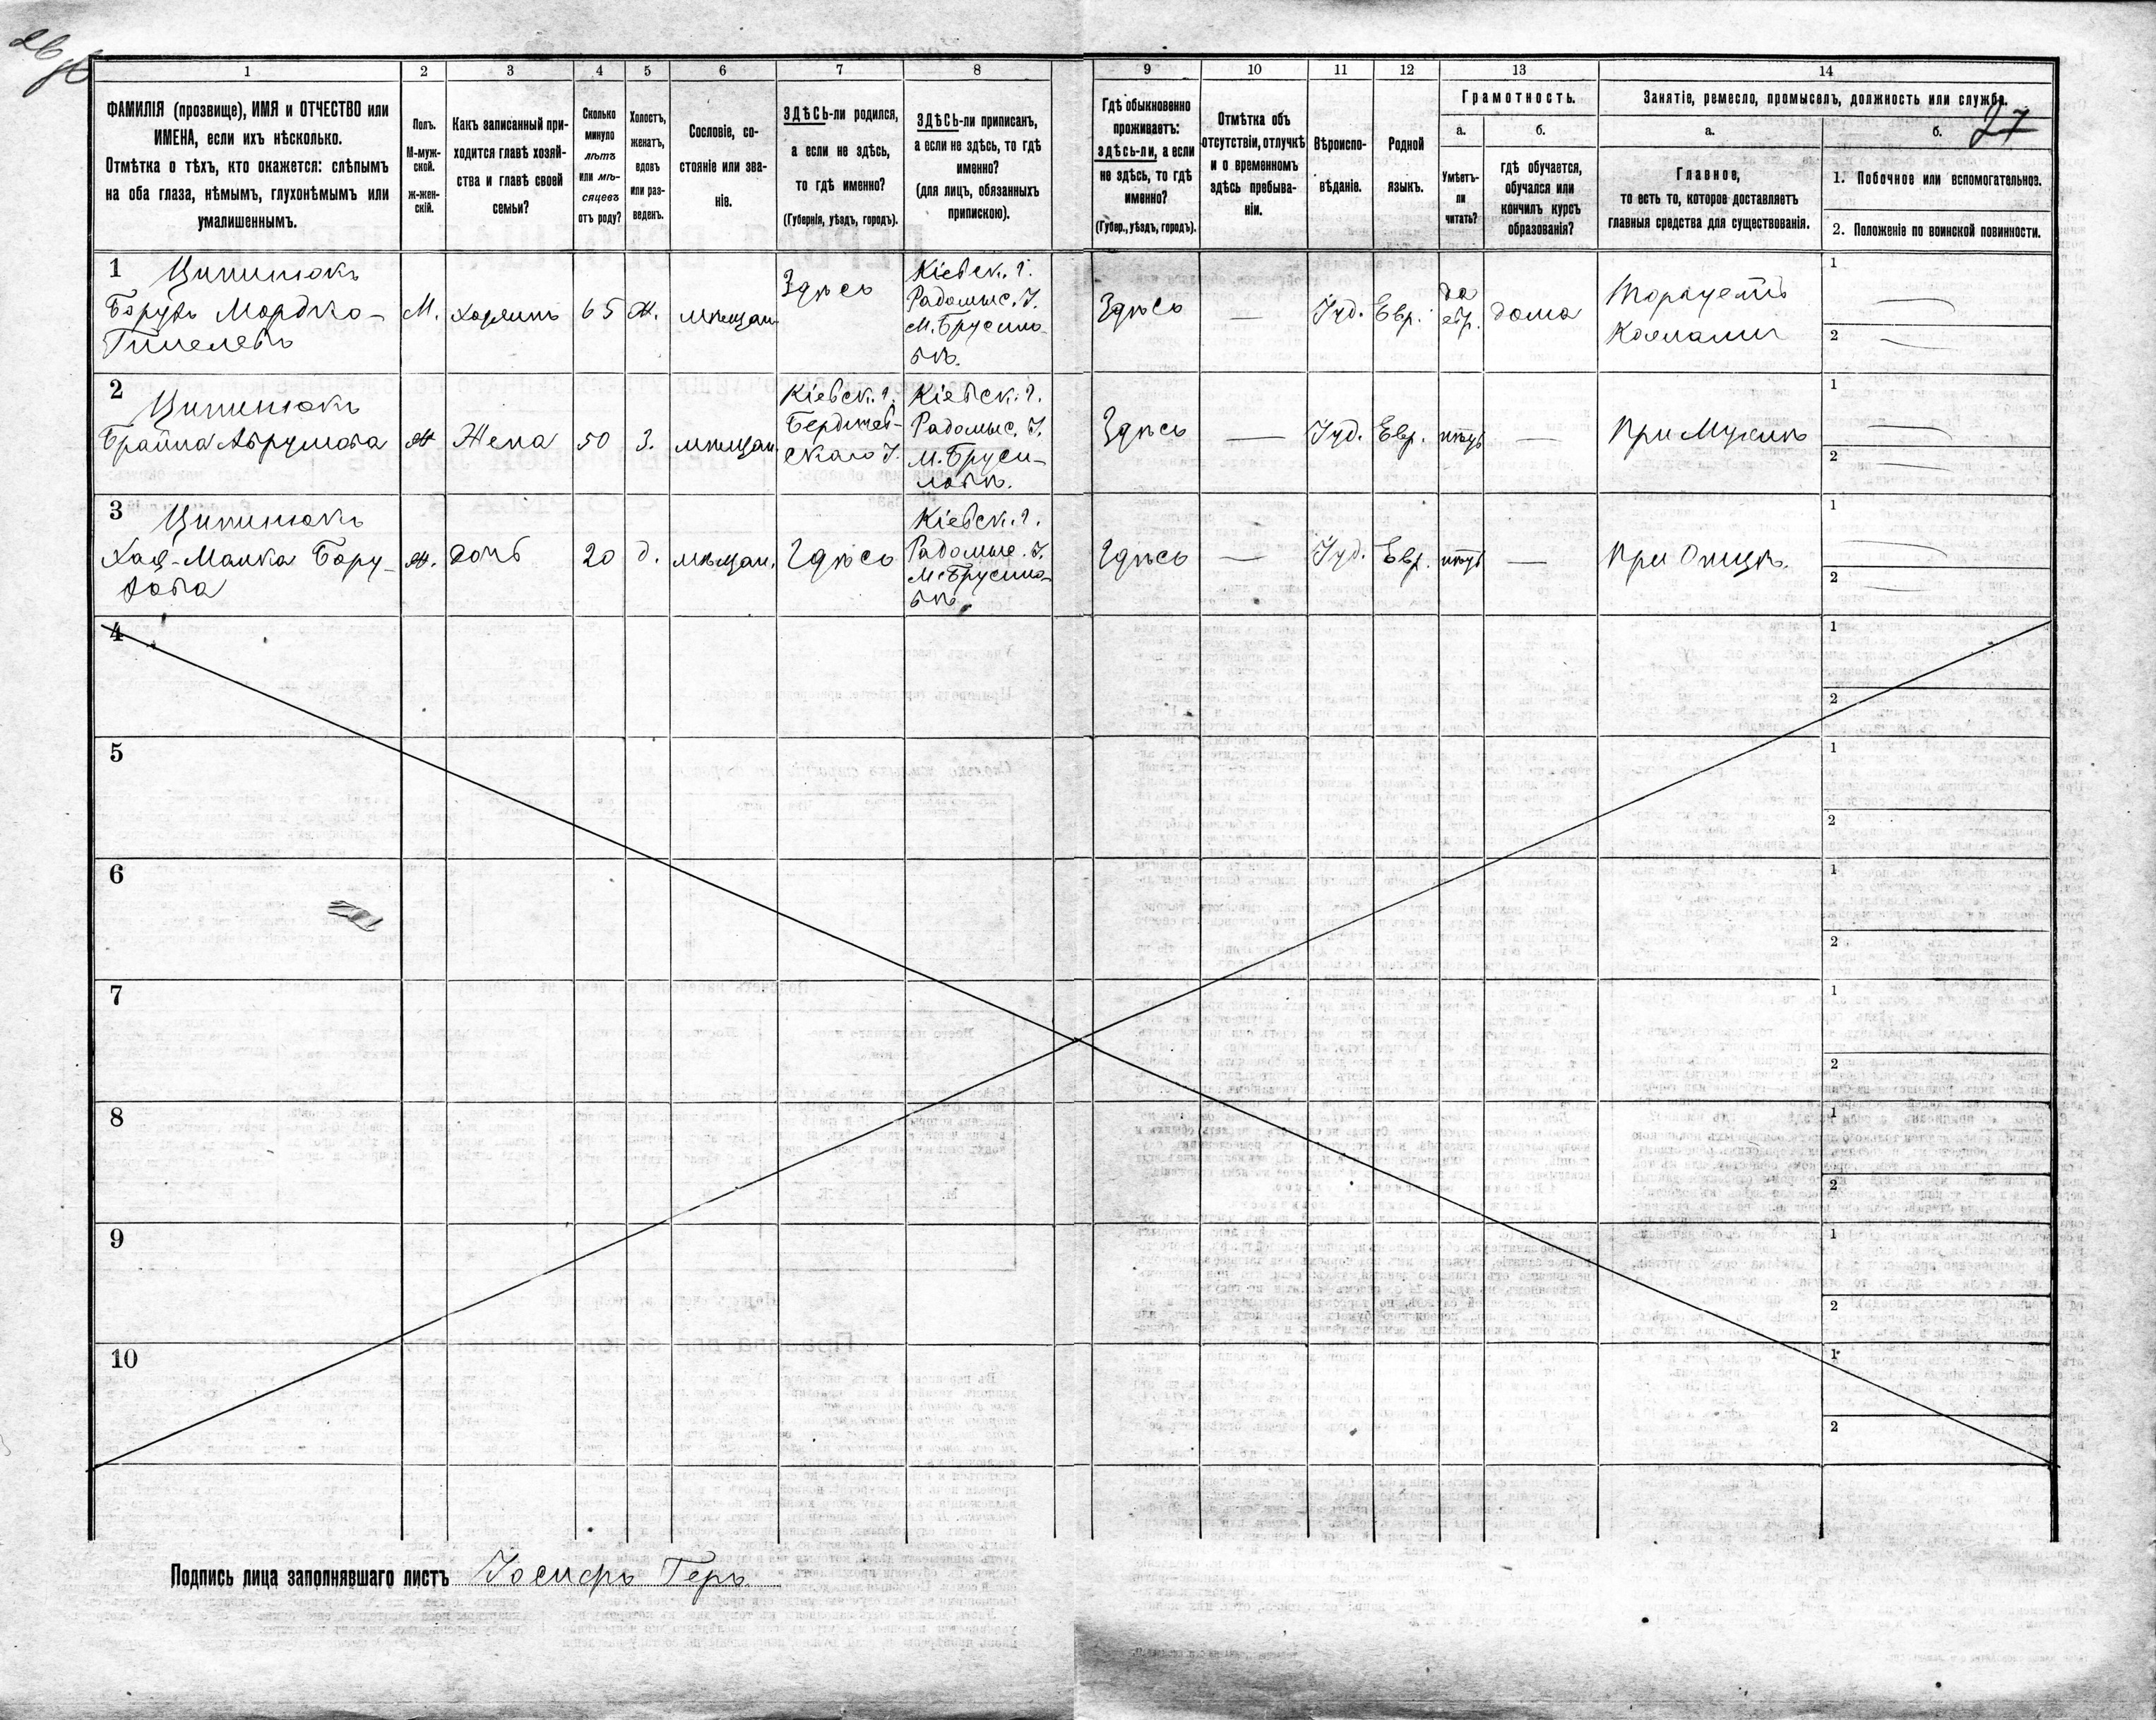 27
1
2
3
4
5
6
7
8
9
10
11
12
13
14
ФАМИЛІЯ (прозвище), ИМЯ и ОТЧЕСТВО или
ИМЕНА, если ихъ нѣсколько.
Отмѣтка о тѣхъ, кто окажется: слѣпымъ
на оба глаза, нѣмымъ, глухонѣмымъ или
умалишеннымъ.
Полъ.
М-муж-
ской.
ж-жен-
скій.
Какъ записанный при-
ходится главѣ хозяй-
ства и главѣ своей
семьи?
Сколько
минуло
лѣтъ
или мѣ-
сяцевъ
отъ роду?
Холостъ,
женатъ,
вдовъ
или раз-
веденъ.
Сословіе, со-
стояніе или зва-
ніе.
ЗДѢСЬ-ли родился,
а если не здѣсь,
то гдѣ именно?
(Губернія, уѣздъ, городъ).
ЗДѢСЬ-ли приписанъ,
а если не здѣсь, то гдѣ
именно?
(для лицъ, обязанныхъ
припискою).
Гдѣ обыкновенно
проживаетъ:
здѣсь-ли, а если
не здѣсь, то гдѣ
именно?
(Губер., уѣздъ, городъ).
Отмѣтка объ
отсутствіи, отлучкѣ
и о временномъ
здѣсь пребыва-
ніи.
Вѣроиспо-
вѣданіе.
Родной
языкъ.
Грамотность.
а.
Умѣетъ-
ли
читать?
б.
гдѣ обучается,
обучался или
кончилъ курсъ
образованія?
Занятіе, ремесло, промыселъ, должность или служба.
а.
Главное,
то есть то, которое доставляетъ
главныя средства для существованія.
б.
1. Побочное или вспомогательное.
2. Положеніе по воинской повинности.
1
Ципинюкъ
Борухъ Мордко-
М.
хозяинъ
65
Ж.
мѣщан.
Здѣсь
Кіевск. г.
Радомыс. У.
М. Брусило-
вѣ.
Здѣсь
—
Іуд.
Евр.
да
евр.
дома
1
—
2
—
2
Ципинюкъ
Брайна Аврумова
Ж
Жена
50
З.
мѣщан.
Кіевск. г.
Бердичев-
скаго У.
Кіевск. г.
Радомыс. У.
М. Бруси-
ловѣ.
Здѣсь
—
Іуд.
Евр.
нѣтъ
—
При Мужѣ
1
—
2
—
3
Ципинюкъ
Хая-Малка Бору-
хова
ж.
дочь
20
д.
мѣщан.
Здѣсь
Кіевск. г.
Радомыс. У.
М. Брусило-
вѣ.
Здѣсь
—
Іуд.
Евр.
нѣтъ
—
При Отцѣ.
1
—
2
—
4
1
2
5
1
2
6
1
2
7
1
2
8
1
2
9
1
2
10
1
2
Подпись лица заполнявшаго листъ Іосифъ Геръ.